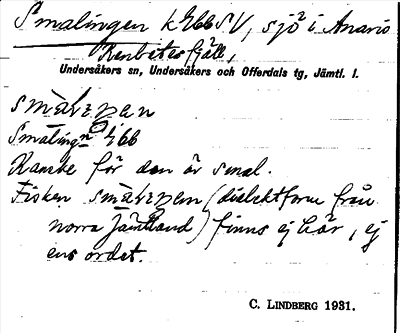 Smalingen k Ebb SV, sjö i Anaris
Renbetesfjäll,
Undersåkers sn, Undersåkers och Offerdals tg, Jämtl. l.
Smaling Ebb
Kanske för den är smal.
Fisken (dialektform från
norra Jämtland) finns ej här, ej
ens ordet.
C. LINDBERG 1931.